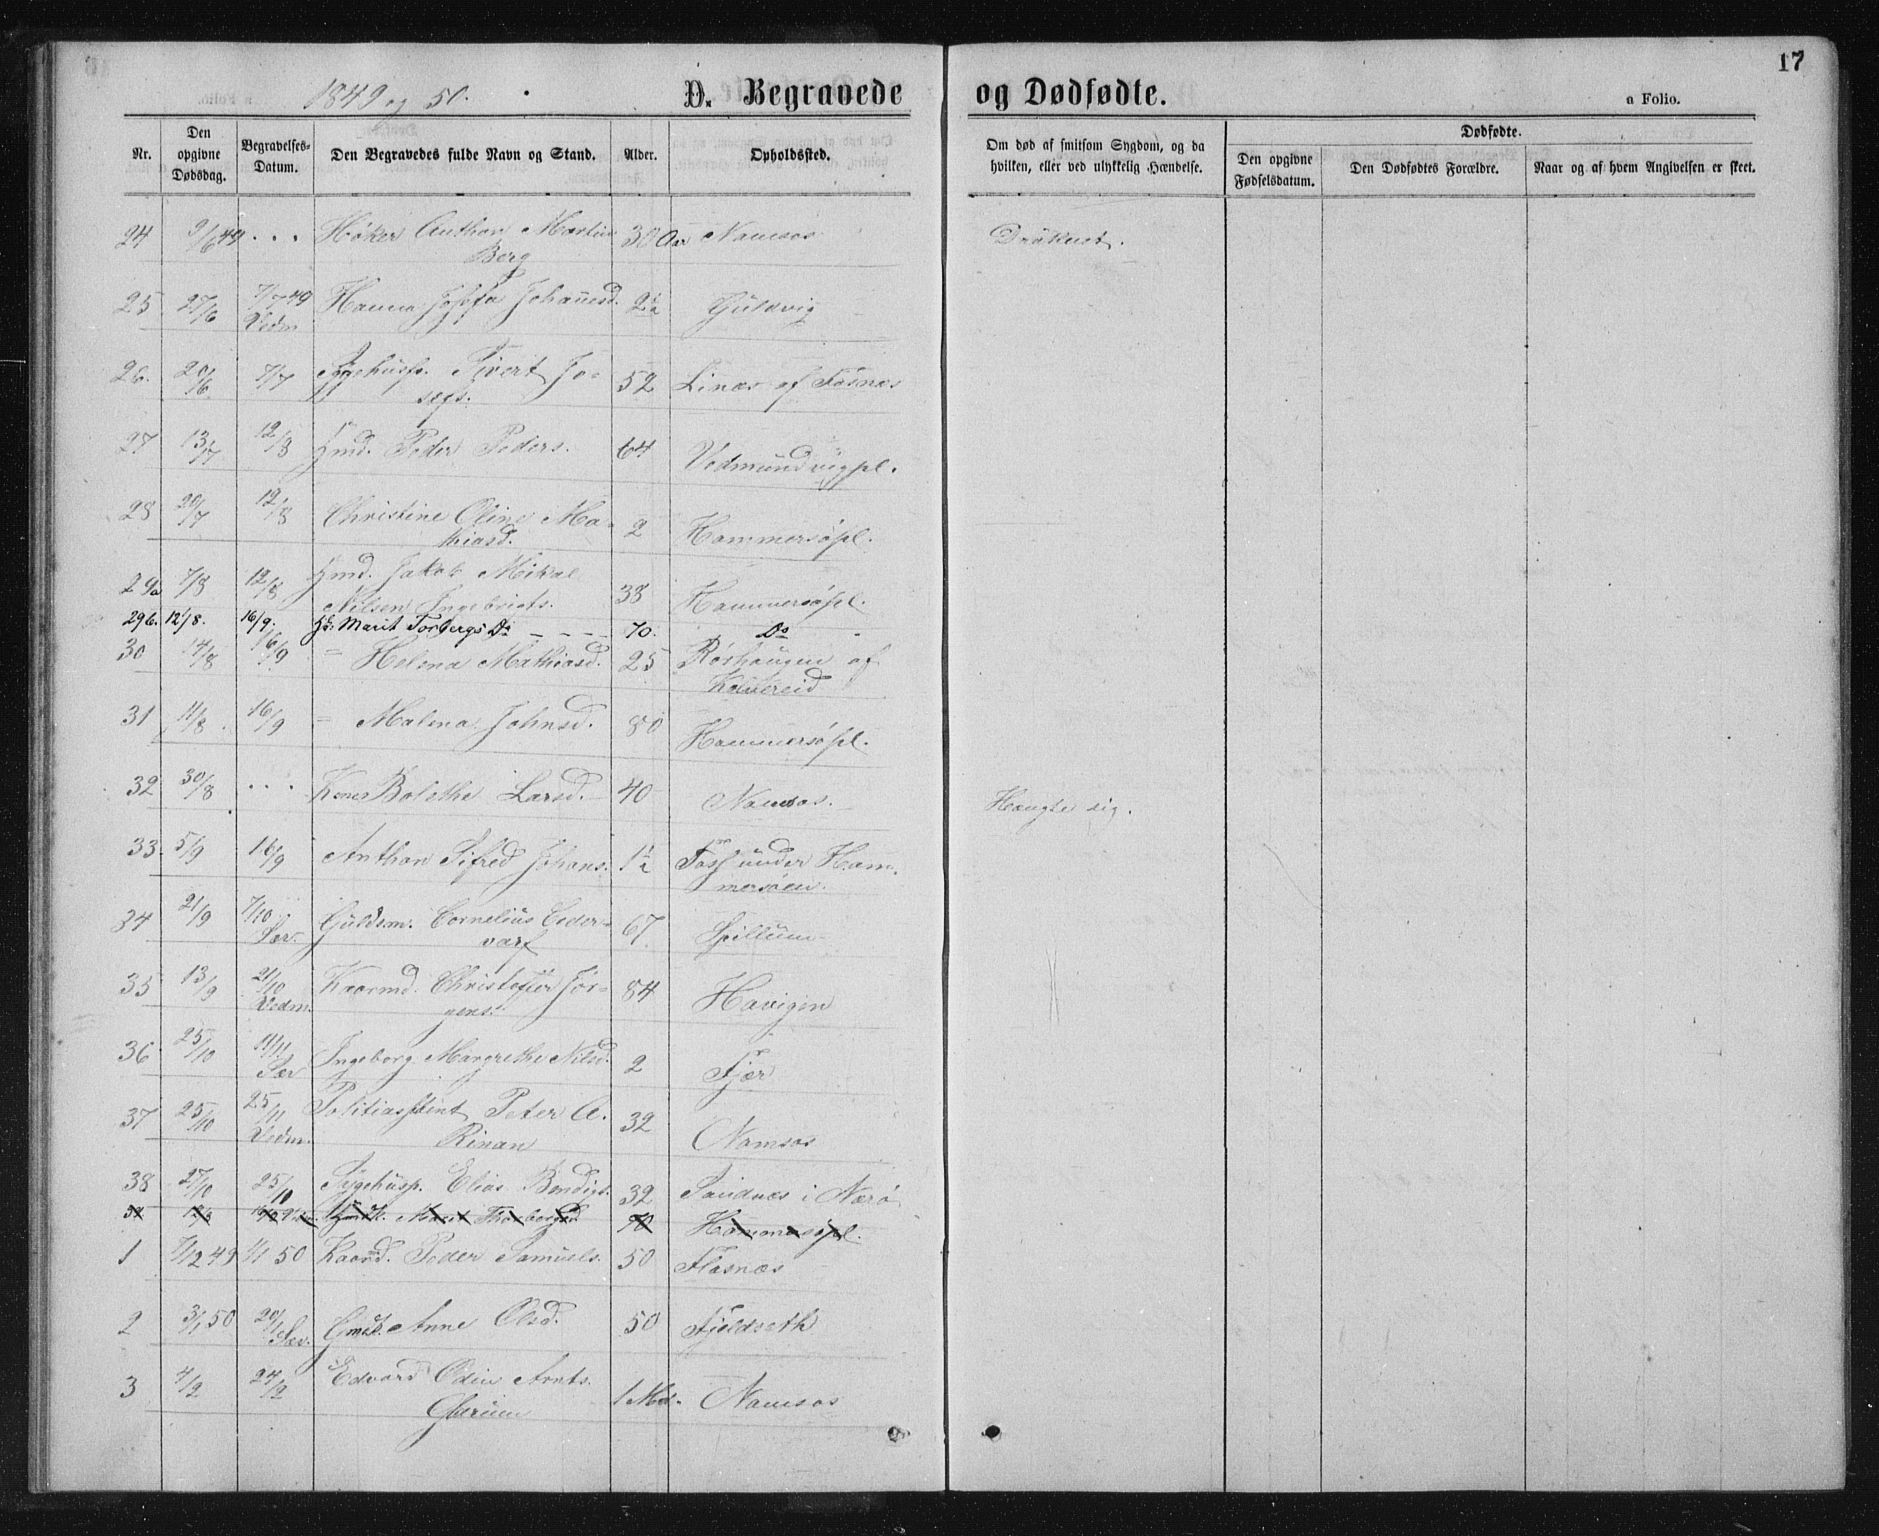 17
1849 og 50.
D. Begravede og Dødfødte.
a Folio.
Nr.
Den opgivne Dødsdag.
Begravelses-Datum.
Den Begravedes fulde Navn og Stand.
Alder.
Opholdssted.
Om død af smitsom Sygdom, og da hvilken, eller ved ulykkelig Hændelse.
Dødfødte.
Den opgivne Fødselsdatum.
Den Dødfødtes Forældre.
Naar og af hvem Angivelsen er skeet.
24 9/6 49 . . . Høker Anthon Martin 30 Aar Namsos Druknet.
Berg
25 27/6 7/7 49 Hanna Josefa Johannesd. 2½ Guldvig
Vedm.
26. 20/6 7/7 Sygehusp. Sivert Jo- 52 Linæs af Fosnæs
sefs.
27 13/7 12/8 Hmd. Peder Peders. 64 Vedmundvigpl.
28 20/7 12/8 Christine Oline Ma- 2 Hammersøpl.
thiasd.
29a 7/8 12/8 Hmd. Jakob Mikal 38 Hammersøpl.
Nilsen Ingebrigts.
29b. 12/8. 16/9. Marit Torbergs Dr - - - - 70. Do
30 14/8 16/9 = Helena Mathiasd. 25 Rørhaugen af
Kolvereid
31 11/8 16/9 = Malena Johnsd. 80 Hammersøpl.
32 30/8 . . . Kone Bolethe Larsd. 40 Namsos. Hængte sig.
33. 5/9 16/9 Anthon Sifred Johans. 1½ Foss under Ham-
mersøen.
34 21/9 7/10 Guldsm. Cornelius Ceder- 67 Spillum
Sær. varf
35 13/9 21/10 Kaarmd. Christofer Jør- 84 Havigen
Vedm. gens.
36 25/10 11/11 Ingeborg Margrethe Nilsd. 2 Fjær
Sær
37 25/10 25/11 Politiasstent Peter A. 32 Namsos
Vedm. Rinan
38 27/10 25/10 Sygehusp. Elias Bendigs. 32 Sandnes i Nærø
Marit Thorbergsd. 70 Hammersøpl.
1 7/12 49 1/1 50 Kaard. Peder Samuels. 50 Flasnæs
2 3/1 50 20/1 Gmdk. Anne Olsd. 50 Fjeldseth
Sær.
3 4/2 24/2 Edvard Odin Arnts. 1 Md. Namsos